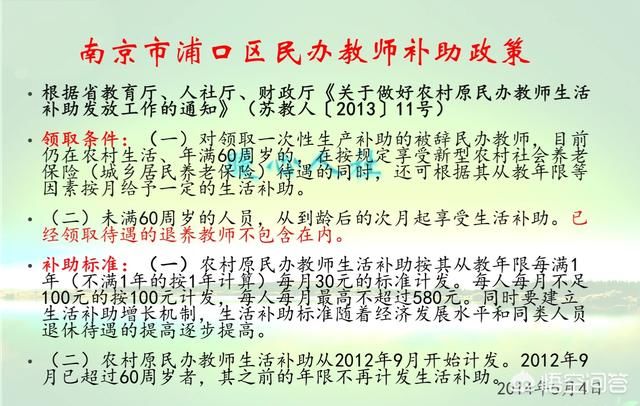 南京市浦口区民办教师补助政策
• 根据省教育厅、人社厅、财政厅《关于做好农村原民办教师生活
补助发放工作的通知》（苏教人〔2013〕11号）
• 领取条件：（一）对领取一次性生产补助的被辞民办教师，目前
仍在农村生活、年满60周岁的，在按规定享受新型农村社会养老
保险（城乡居民养老保险）待遇的同时，还可根据其从教年限等
因素按月给予一定的生活补助。
• （二）未满60周岁的人员，从到龄后的次月起享受生活补助。已
经领取待遇的退养教师不包含在内。
• 补助标准：（一）农村原民办教师生活补助按其从教年限每满1
年（不满1年的按1年计算）每月30元的标准计发。每人每月不足
100元的按100元计发，每人每月最高不超过580元。同时要建立
生活补助增长机制，生活补助标准随着经济发展水平和同类人员
退休待遇的提高逐步提高。
• （二）农村原民办教师生活补助从2012年9月开始计发。2012年9
月已超过60周岁者，其之前的年限不再计发生活补助。
2014年5月4日
悟空问答